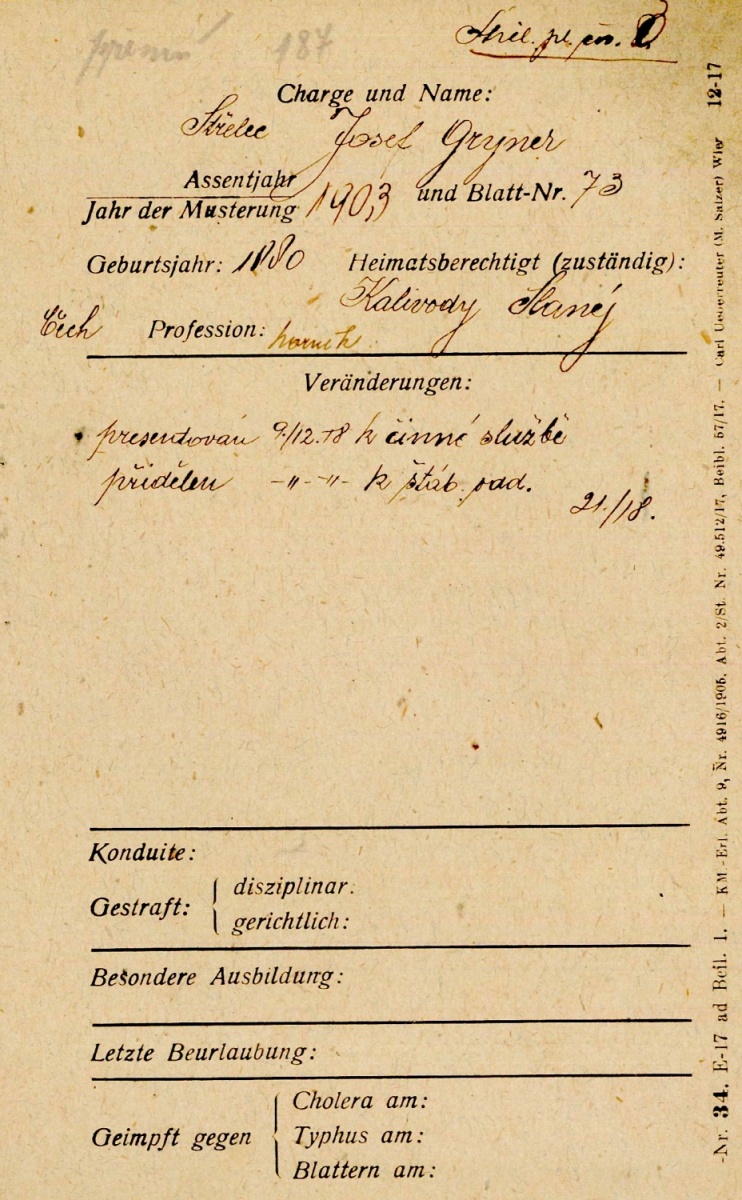 187
Střel. pl. čís.
Charge und Name:
Střelec Josef Gryner
Assentjahr
Jahr der Musterung 1903 und Blatt-Nr. 73
Geburtsjahr: 1880 Heimatsberechtigt (zuständig):
Kalivody Slaný
Čech Profession: horník
Veränderungen:
presentován 9/12.18 k činné službě
přidělen -„-„- k štáb. odd.
21/18.
Konduite:
Gestraft: { disziplinar:
gerichtlich:
Besondere Ausbildung:
Letzte Beurlaubung:
Geimpft gegen { Cholera am:
Typhus am:
Blattern am:
-Nr. 34. E-17 ad Beil. 1. — KM.-Erl. Abt. 9, Nr. 4916/1905. Abt. 2/St. Nr. 49.512/17, Beibl. 57/17. — Carl Ueberreuter (M. Salzer) Wien 12-17